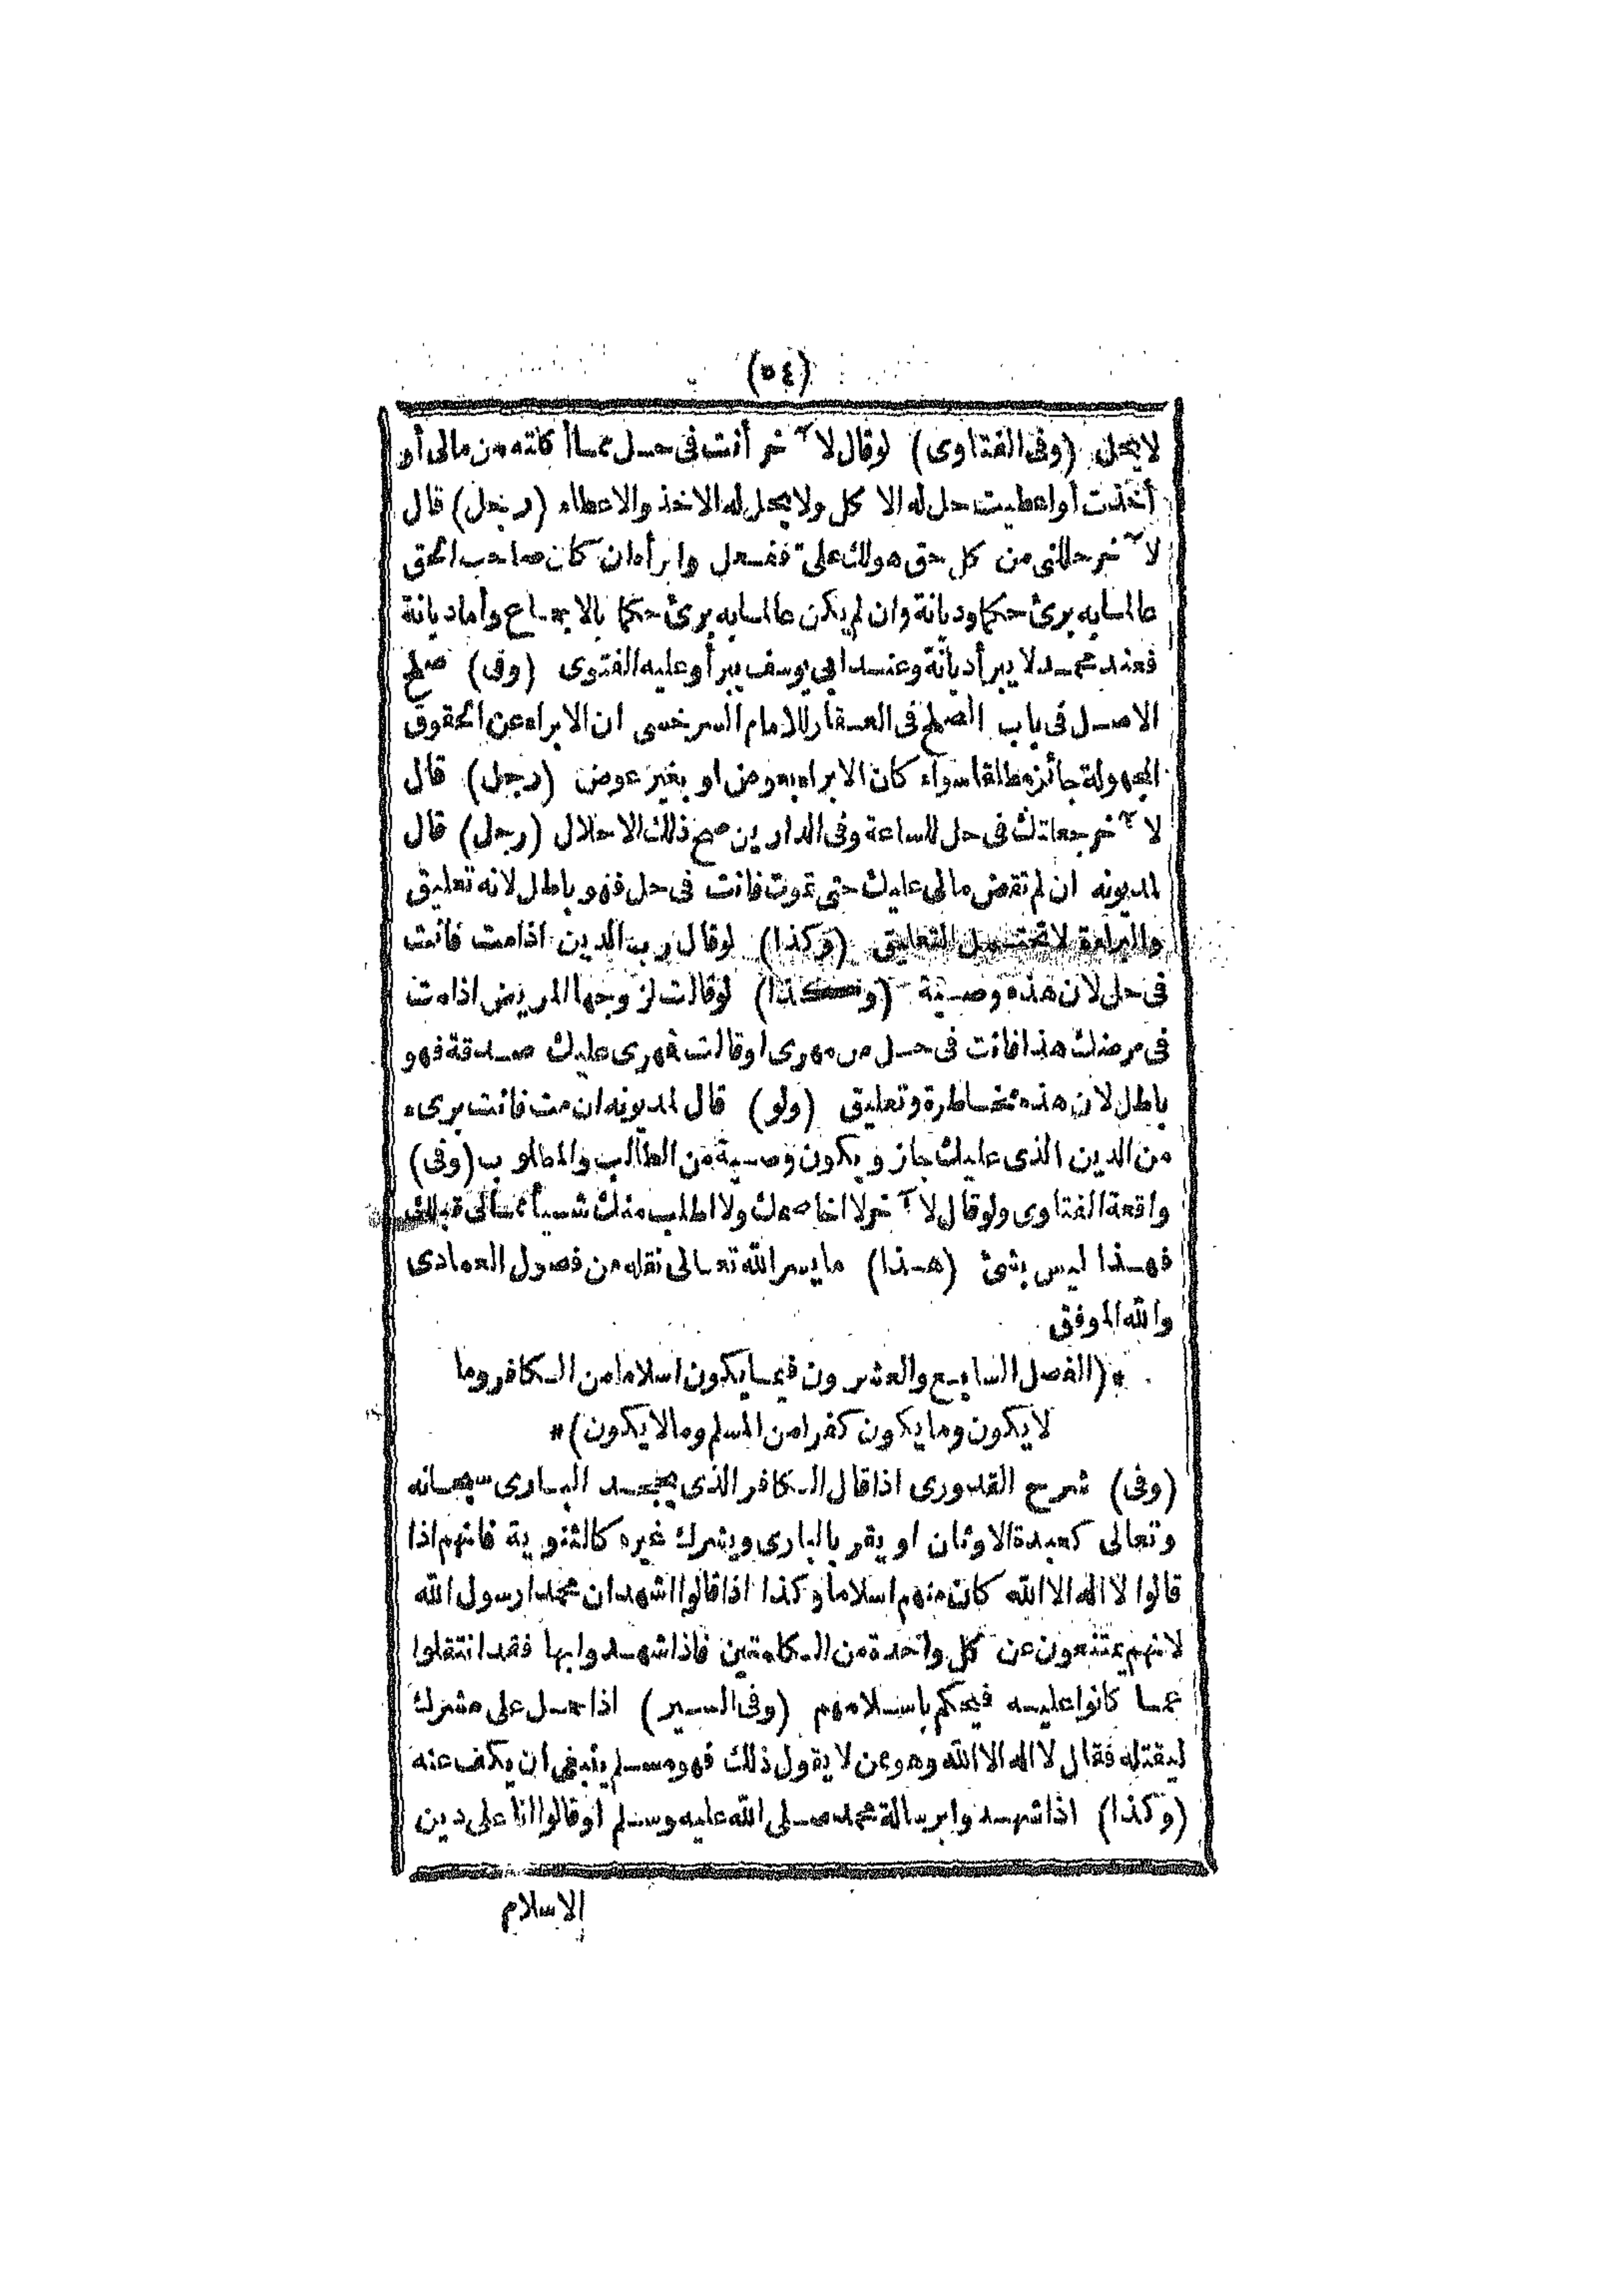 (٥٤)
لا يحل (وفى الفتاوى) لو قال لآخر أنت فى حل مما أكلته من مالى أو
أخذت أو اعطيت حل له الاكل ولا يحل له الاخذ والاعطاء (رجل) قال
لآخر حللنى من كل حق هو لك على ففعل وابرأه ان كان صاحب الحق
عالما به برئ حكما وديانة وان لم يكن عالما به برئ حكما بالاجماع وأما ديانة
فعند محمد لا يبرأ ديانة وعند ابى يوسف يبرأ وعليه الفتوى (وفى) صلح
الاصل فى باب الصلح فى العقار للامام السرخسى ان الابراء عن الحقوق
المجهولة جائز مطلقا سواء كان الابراء بعوض او بغير عوض (رجل) قال
لآخر جعلتك فى حل للساعة وفى الدارين صح ذلك الاحلال (رجل) قال
لمديونه ان لم تقض مالى عليك حتى تموت فانت فى حل فهو باطل لانه تعليق
والبراءة لا تحتمل التعليق (وكذا) لو قال رب الدين اذا مت فانت
فى حل لان هذه وصية (وكذا) لو قالت لزوجها المريض اذا مت
فى مرضك هذا فانت فى حل من مهرى او قالت فمهرى عليك صدقة فهو
باطل لان هذه مخاطرة وتعليق (ولو) قال لمديونه ان مت فانت برىء
من الدين الذى عليك جاز ويكون وصية من الطالب والمطلوب (وفى)
واقعة الفتاوى ولو قال لآخر لا اخاصمك ولا اطلب منك شيأ مما لى قبلك
فهذا ليس بشئ (هذا) ما يسر الله تعالى نقله من فصول العمادى
والله الموفق
*(الفصل السابع والعشرون فيما يكون اسلاما من الكافر وما
لا يكون وما يكون كفرا من المسلم وما لا يكون)*
(وفى) شرح القدورى اذا قال الكافر الذى يجحد البارى سبحانه
وتعالى كعبدة الاوثان او يقر بالبارى ويشرك غيره كالثنوية فانهم اذا
قالوا لا اله الا الله كان منهم اسلاما وكذا اذا قالوا اشهد ان محمدا رسول الله
لانهم يمتنعون عن كل واحدة من الكلمتين فاذا شهدوا بها فقد انتقلوا
عما كانوا عليه فيحكم باسلامهم (وفى السير) اذا حمل على مشرك
ليقتله فقال لا اله الا الله وهو ممن لا يقول ذلك فهو مسلم ينبغى ان يكف عنه
(وكذا) اذا شهدوا برسالة محمد صلى الله عليه وسلم او قالوا انا على دين
الاسلام